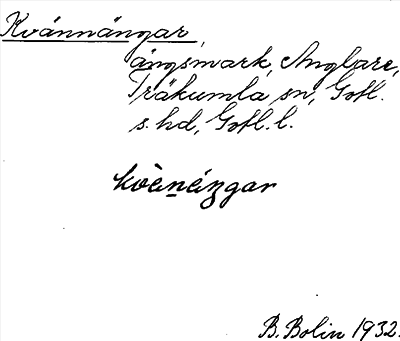 Kvánnängar,
ängsmark, Anglare,
Träkumla sn, Gotl.
s. hd, Gotl. l.
kvènéŋgar
B. Bolin 1932.